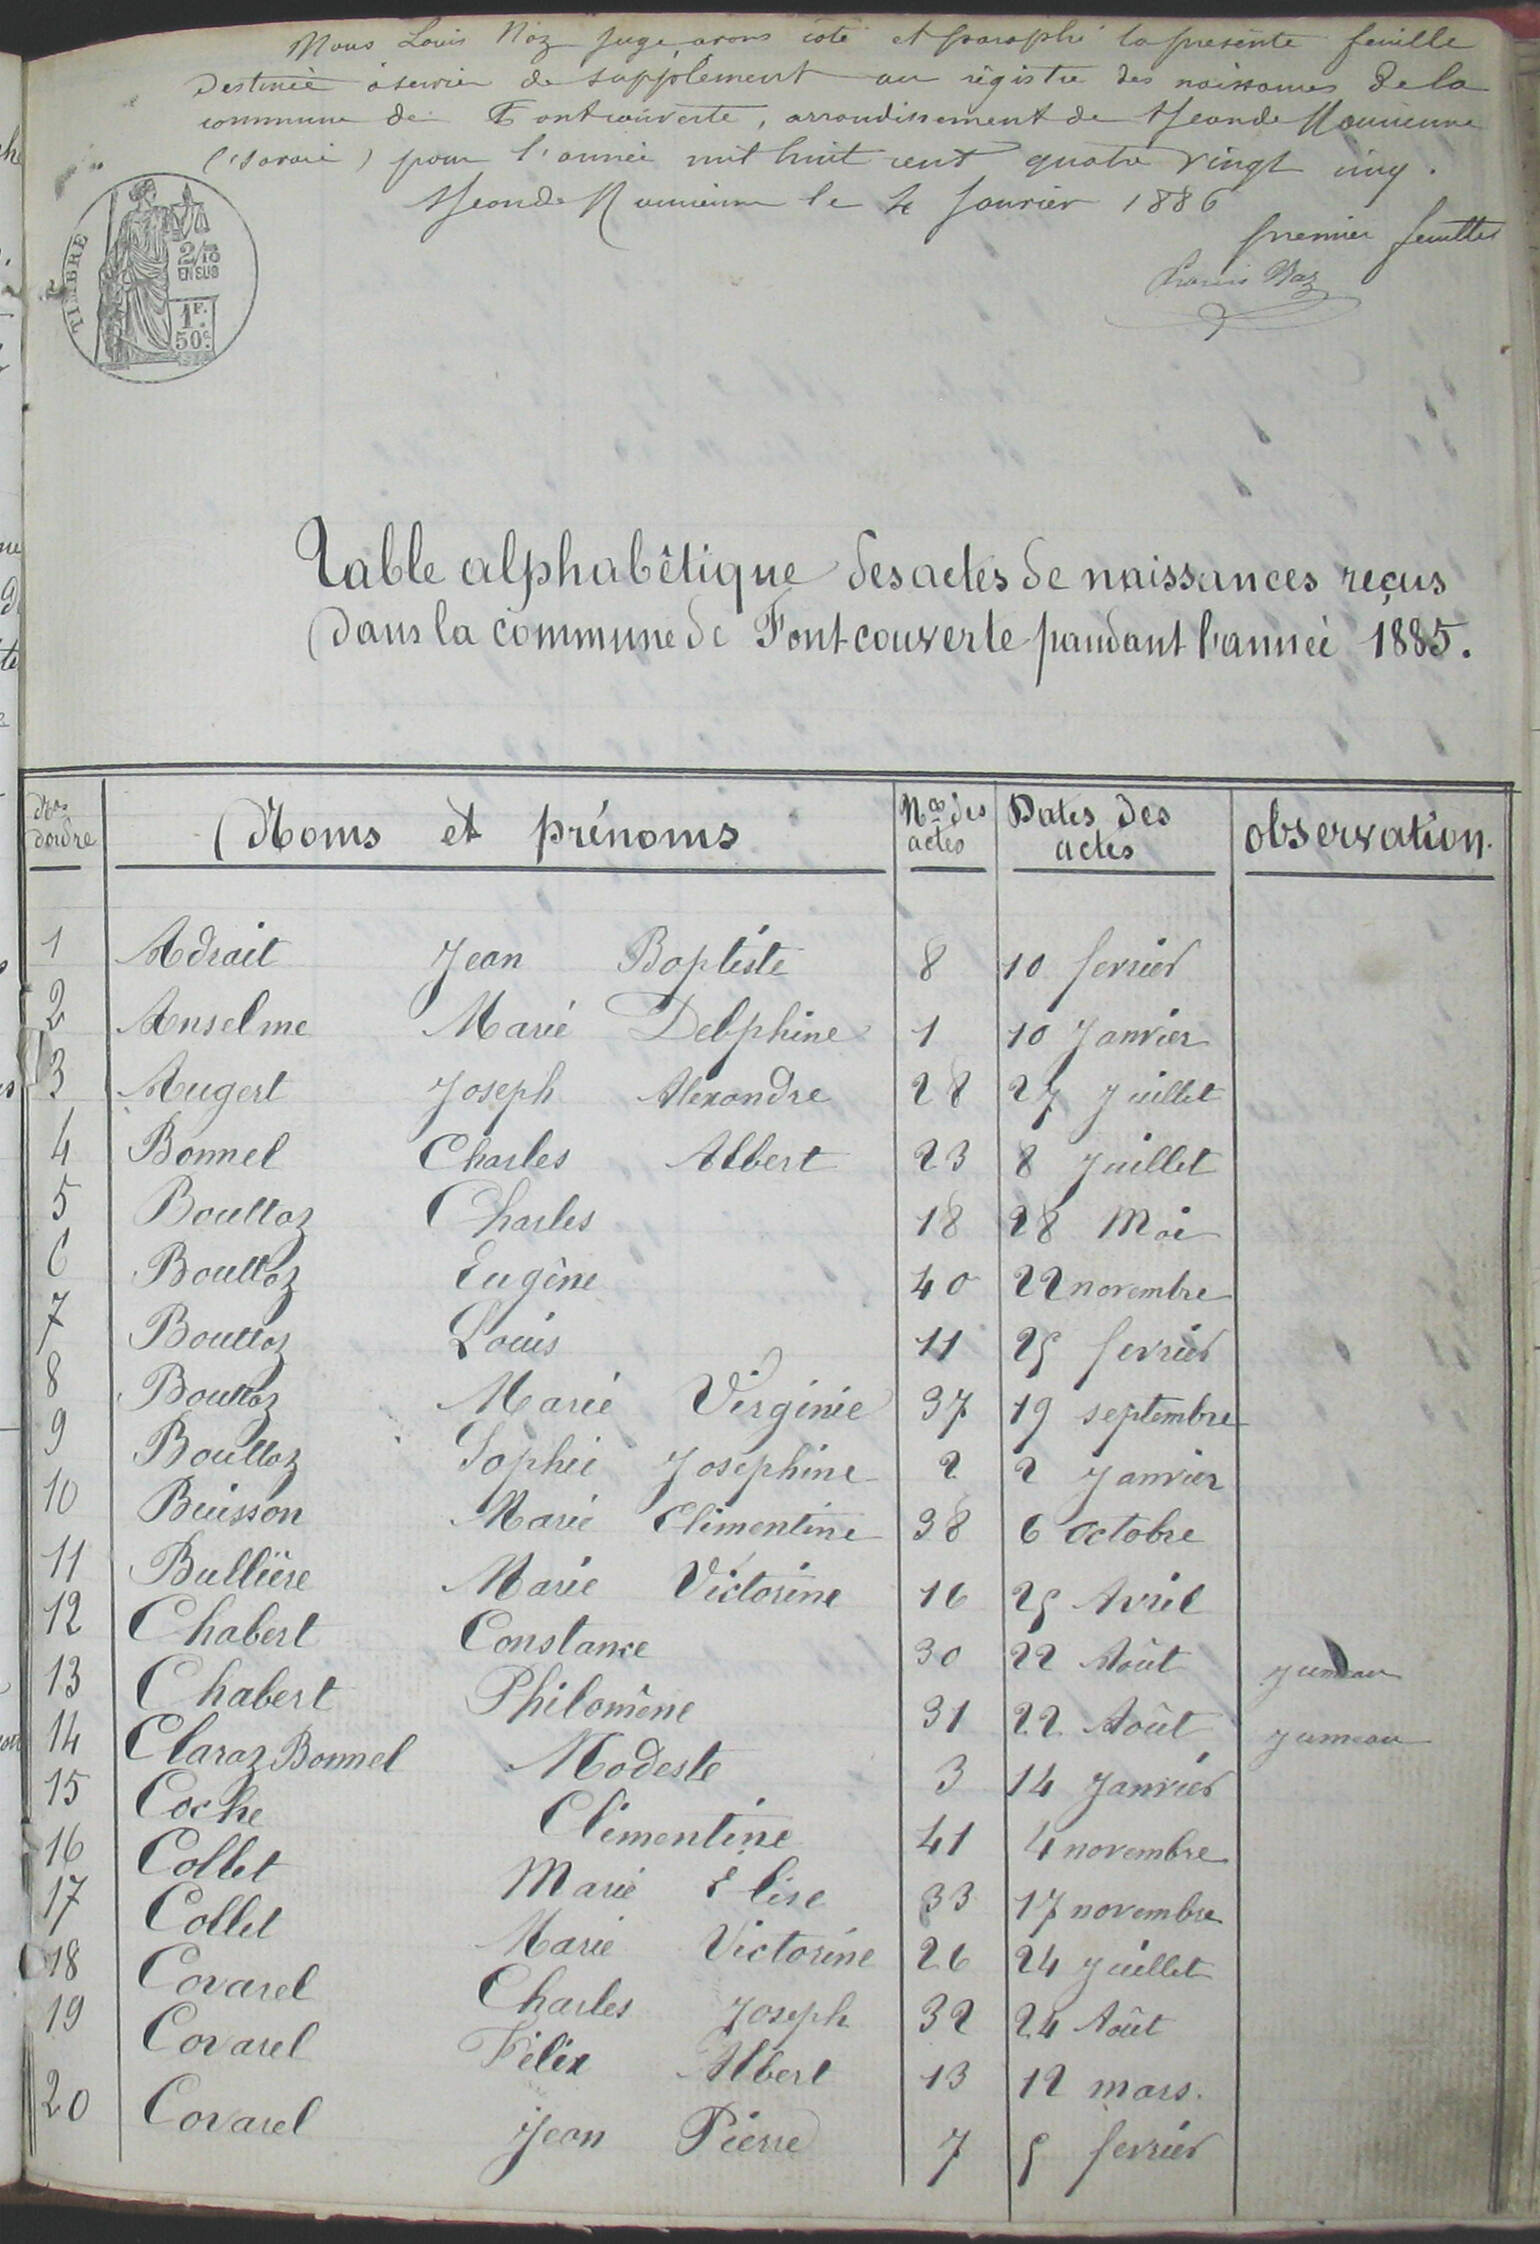 Nous Louis Noz juge avons coté et paraphé la présente feuille
destinée à servir de supplément au régistre des naissances de la
commune de Fontcouverte, arrondissement de St Jean de Maurienne
(Savoie) pour l'année mil huit cent quatre vingt cinq.
St Jean de Maurienne le 4 Janvier 1886
premier feuillet
Louis Noz
TIMBRE
2/10
EN SUS
1F.
50c.
Table alphabêtique des actes de naissances reçus
dans la commune de Fontcouverte pandant l'année 1885.
Nos d'ordre Noms et prénoms Nos des actes Dates des actes observation.
1 Adrait Jean Baptiste 8 10 fevrier
2 Anselme Marie Delphine 1 10 Janvier
3 Augert Joseph Alexandre 28 27 Juillet
4 Bonnel Charles Albert 23 8 Juillet
5 Bouttaz Charles 18 28 Mai
6 Bouttaz Eugène 40 22 novembre
7 Bouttaz Louis 11 25 fevrier
8 Bouttaz Marie Virginie 37 19 septembre
9 Bouttaz Sophie Josephine 2 2 Janvier
10 Buisson Marie Clémentine 38 6 octobre
11 Bullière Marie Victorine 16 25 Avril
12 Chabert Constance 30 22 Août jumeau
13 Chabert Philomène 31 22 Août jumeau
14 Claraz Bonnel Modeste 3 14 Janvier
15 Coche Clémentine 41 4 novembre
16 Collet Marie Elise 33 17 novembre
17 Collet Marie Victorine 26 24 Juillet
18 Covarel Charles Joseph 32 24 Août
19 Covarel Félix Albert 13 12 mars.
20 Covarel Jean Pierre 7 5 fevrier